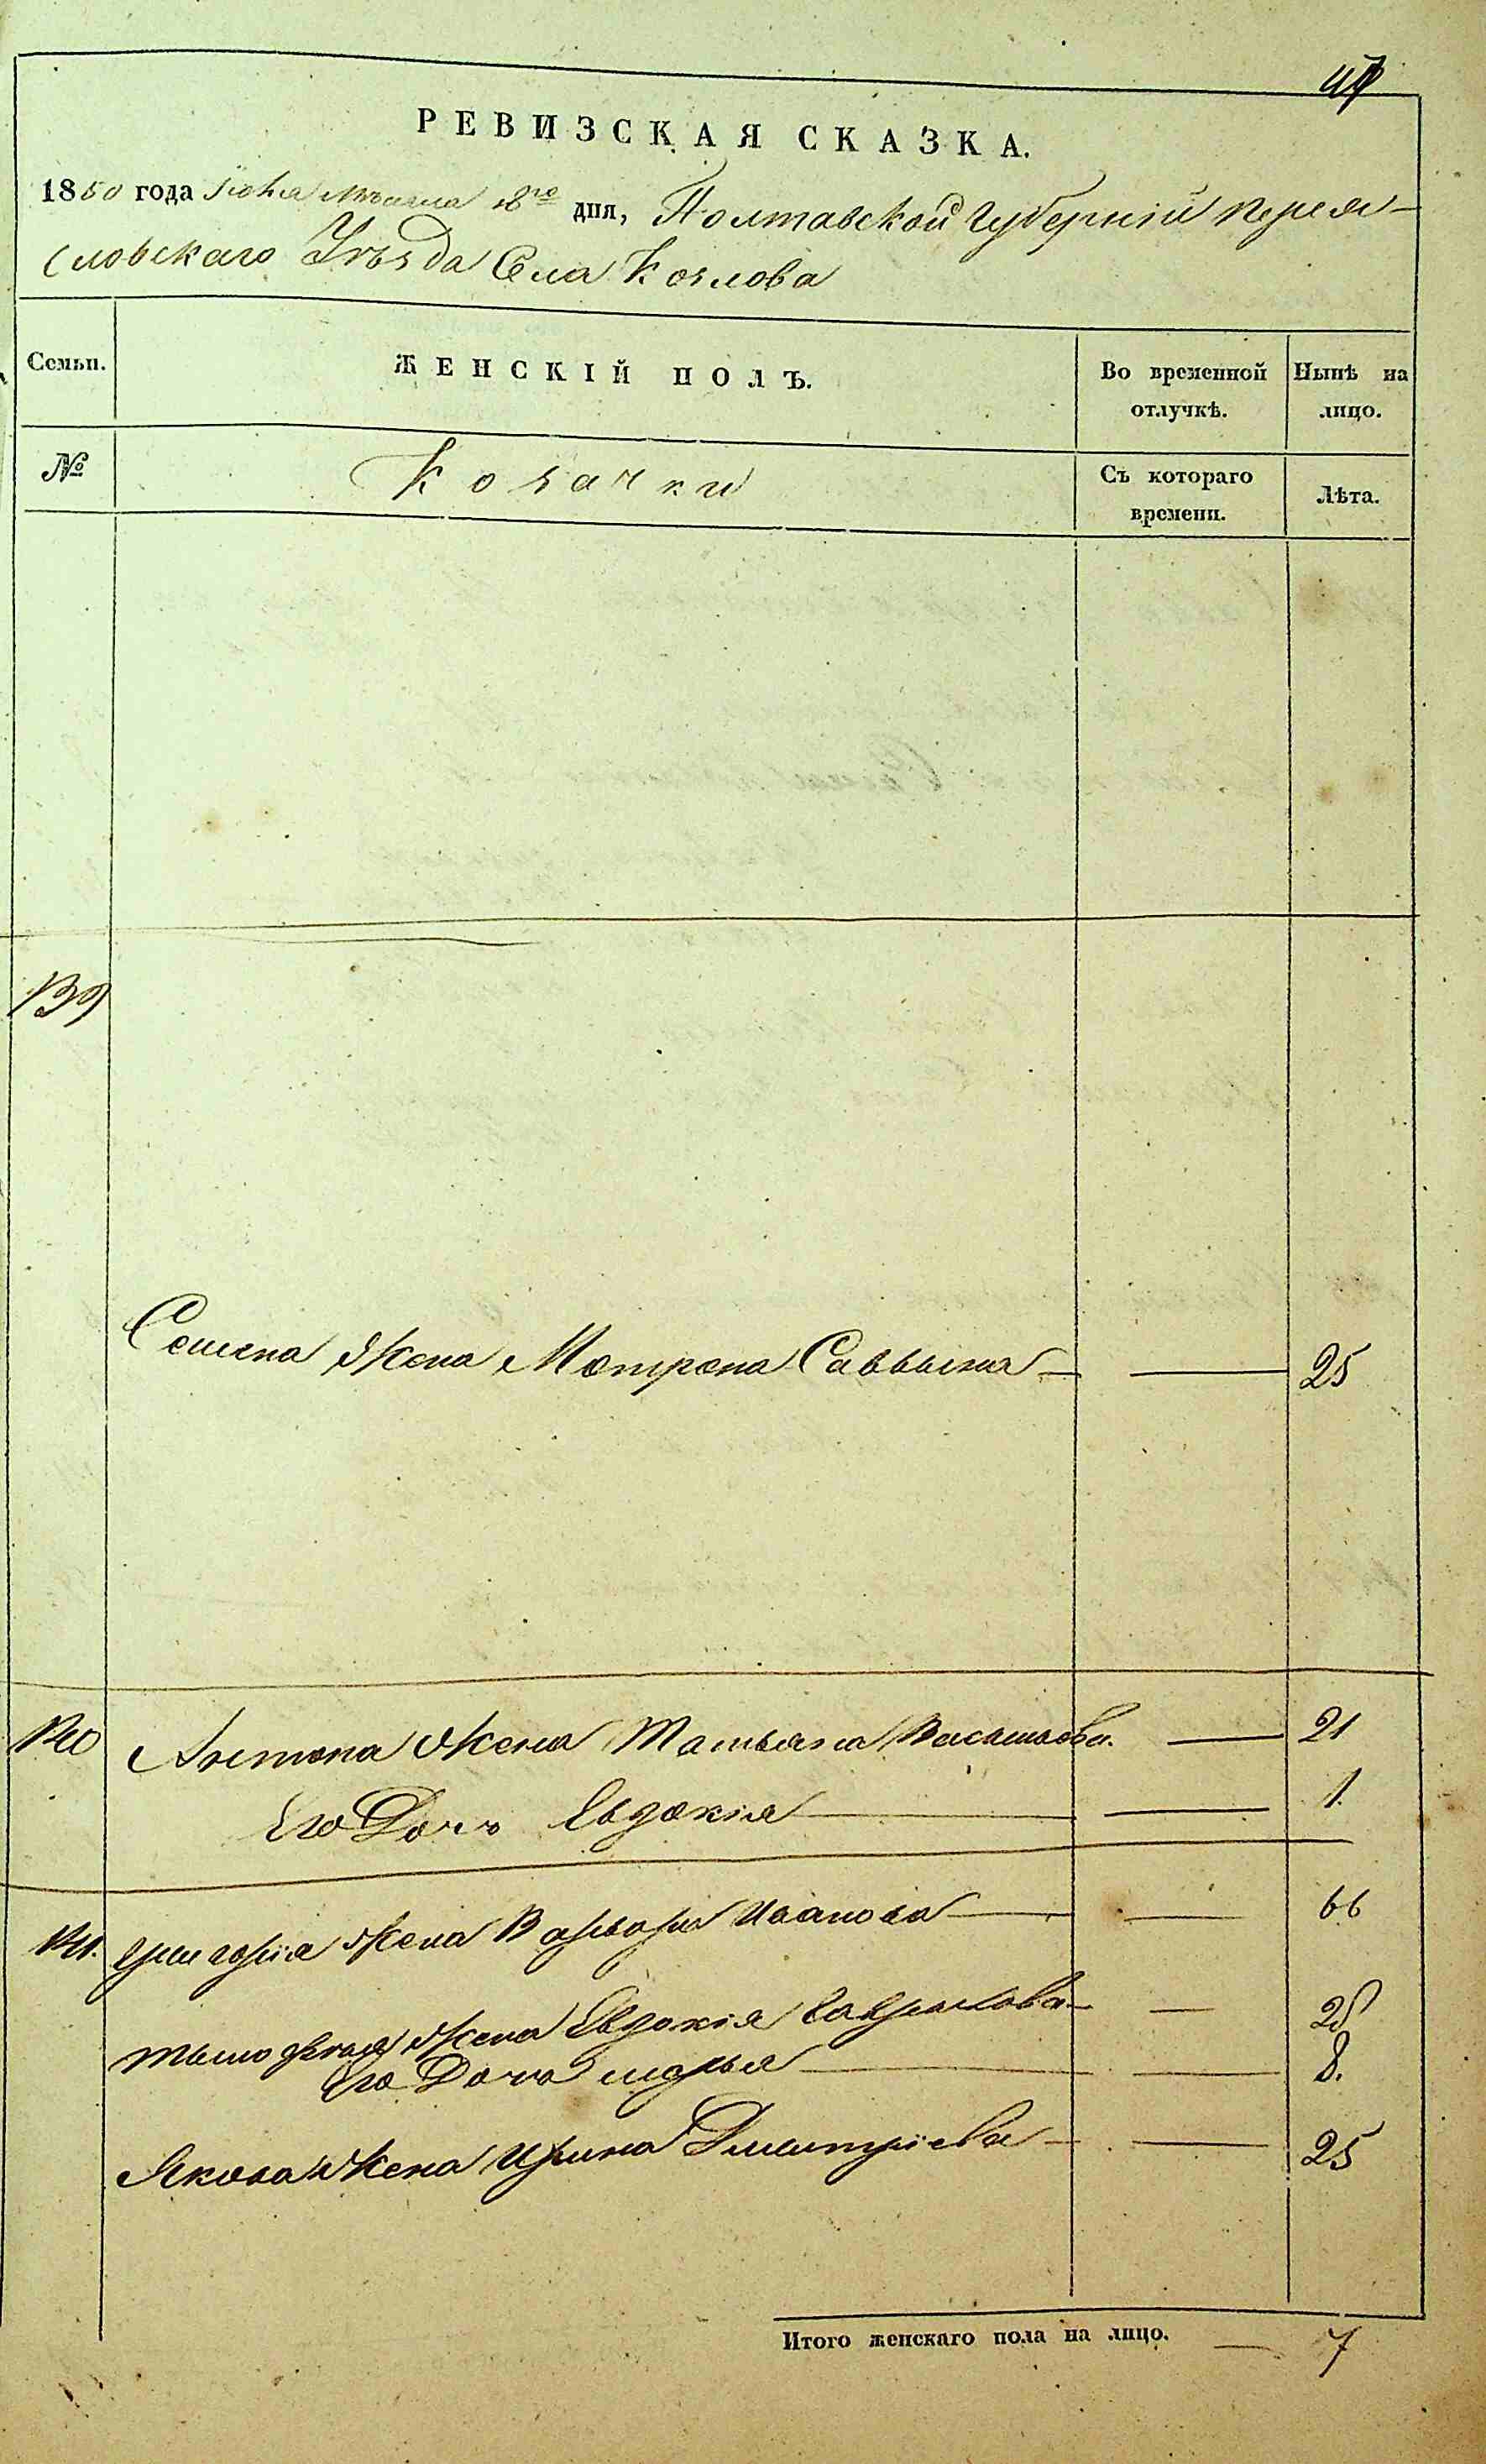 47
РЕВИЗСКАЯ СКАЗКА.
1850 года Іюня Мѣсяца 18го дня, Полтавской Губерніи Перея-
словскаго Уѣзда Села Козлова
Семьи. ЖЕНСКІЙ ПОЛЪ. Во временной отлучкѣ. Нынѣ на лицо.
№ Козачки Съ котораго времени. Лѣта.
139
Семена Жена Мотрона Саввына — — 25
140 Антона Жена Татьяна — 21
Его Дочь Евдокія — — 1
141. Григорія Жена Варвара Иванова — — 66
Тымофея Жена Евдокія Гаврилова — — 28
Его Дочь Марья — — 8.
Якова Жена Ирина Дмитріева — — 25
Итого женскаго пола на лицо. — 7